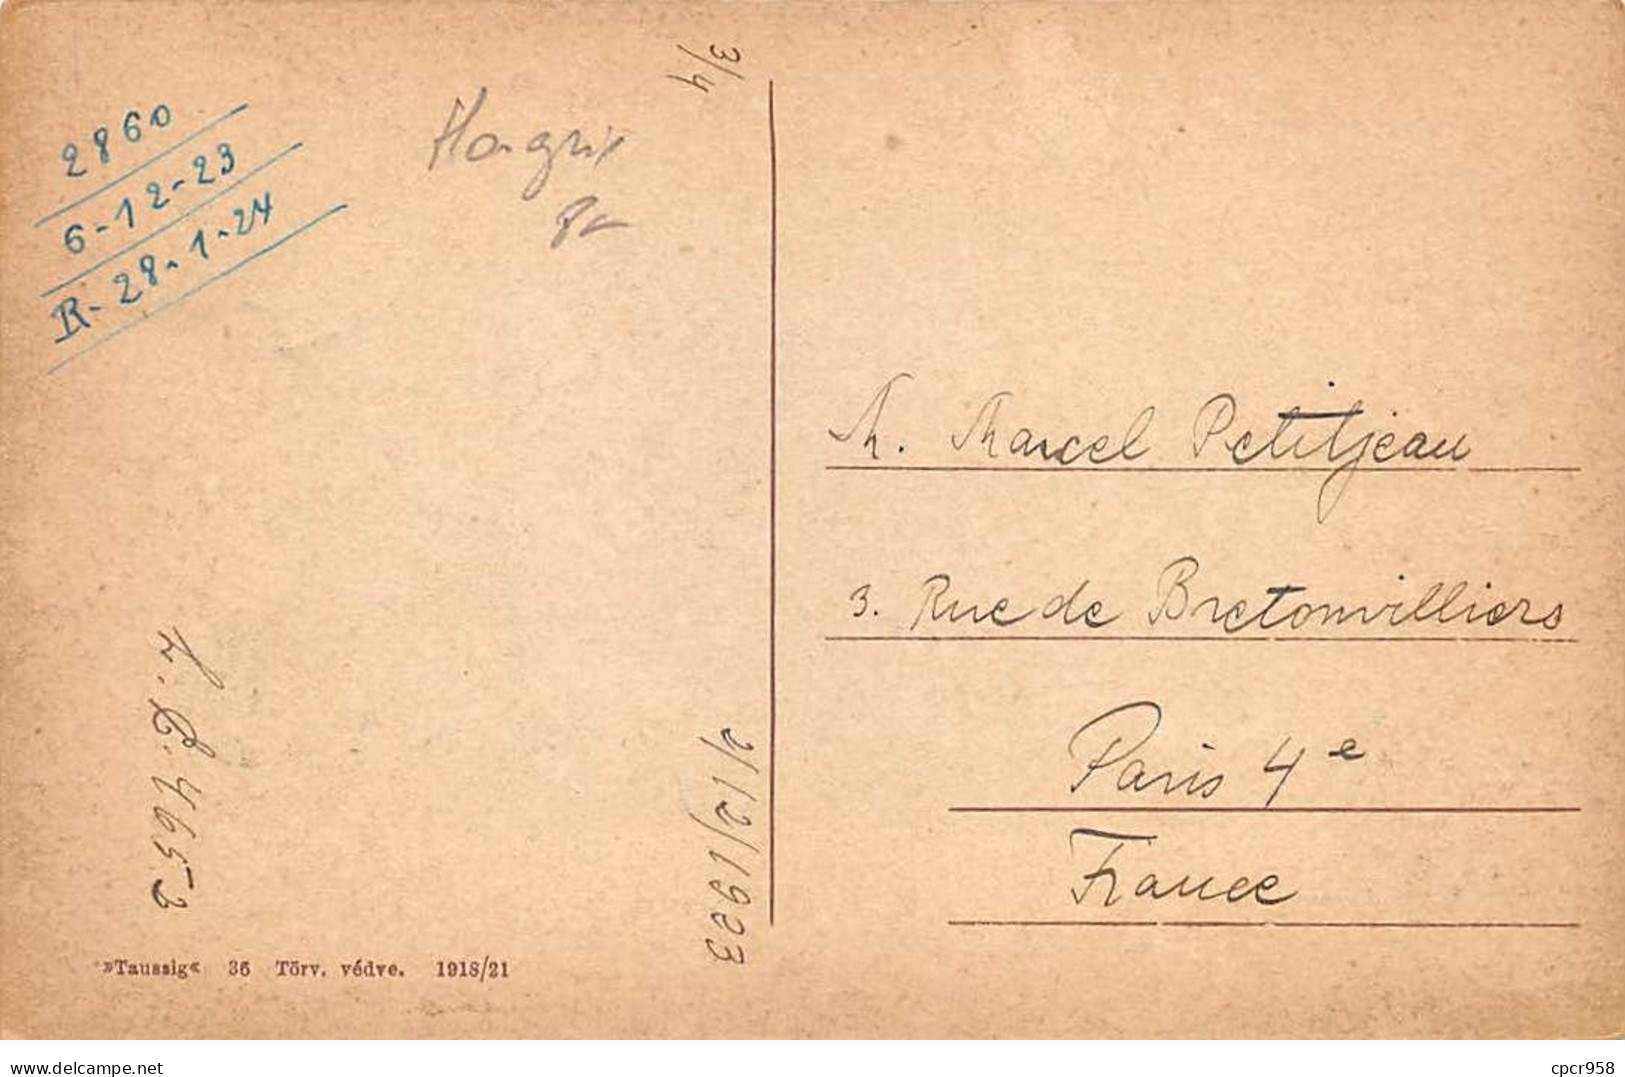 2860
6-12-23
R-28-1-24
Hongrie
3/4
M. Marcel Petitjean
3. Rue de Bretonvilliers
Paris 4e
France
L. C. 4653
2/12/1923
»Taussig« 36 Törv. védve. 1918/21
delcampe.net
cpcr958